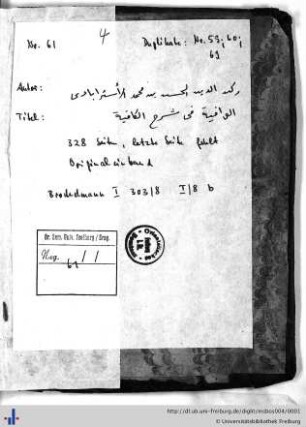 No. 61
4
Duplikate: No. 59; 60;
69
Autor: ركن الدين الحسن بن محمد الأستراباذى
Titel: الوافية فى شرح الكافية
328 Seiten, letzte Seite fehlt
Originaleinband
Brockelmann I 303/8 I/8 b
Or. Sem. Univ. Freiburg / Brsg.
61 / /
http://dl.ub.uni-freiburg.de/diglit/msbos004/0001
© Universitätsbibliothek Freiburg